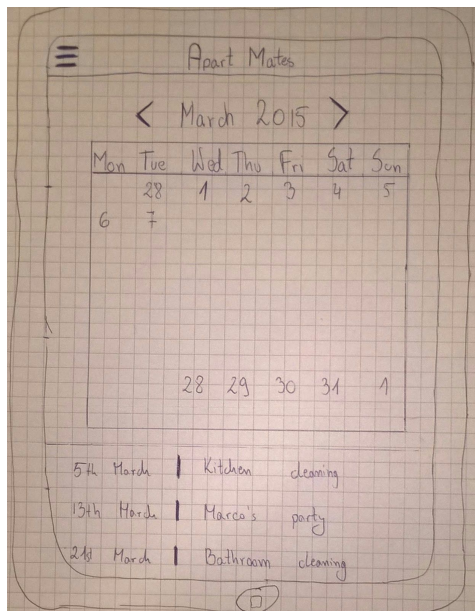 Apart Mates
< March 2015 >
Mon Tue Wed Thu Fri Sat Sun
28 1 2 3 4 5
6 7
28 29 30 31 1
5th March | Kitchen cleaning
13th March | Marco's party
21st March | Bathroom cleaning